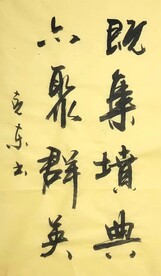 既集墳典
亦聚群英
东书